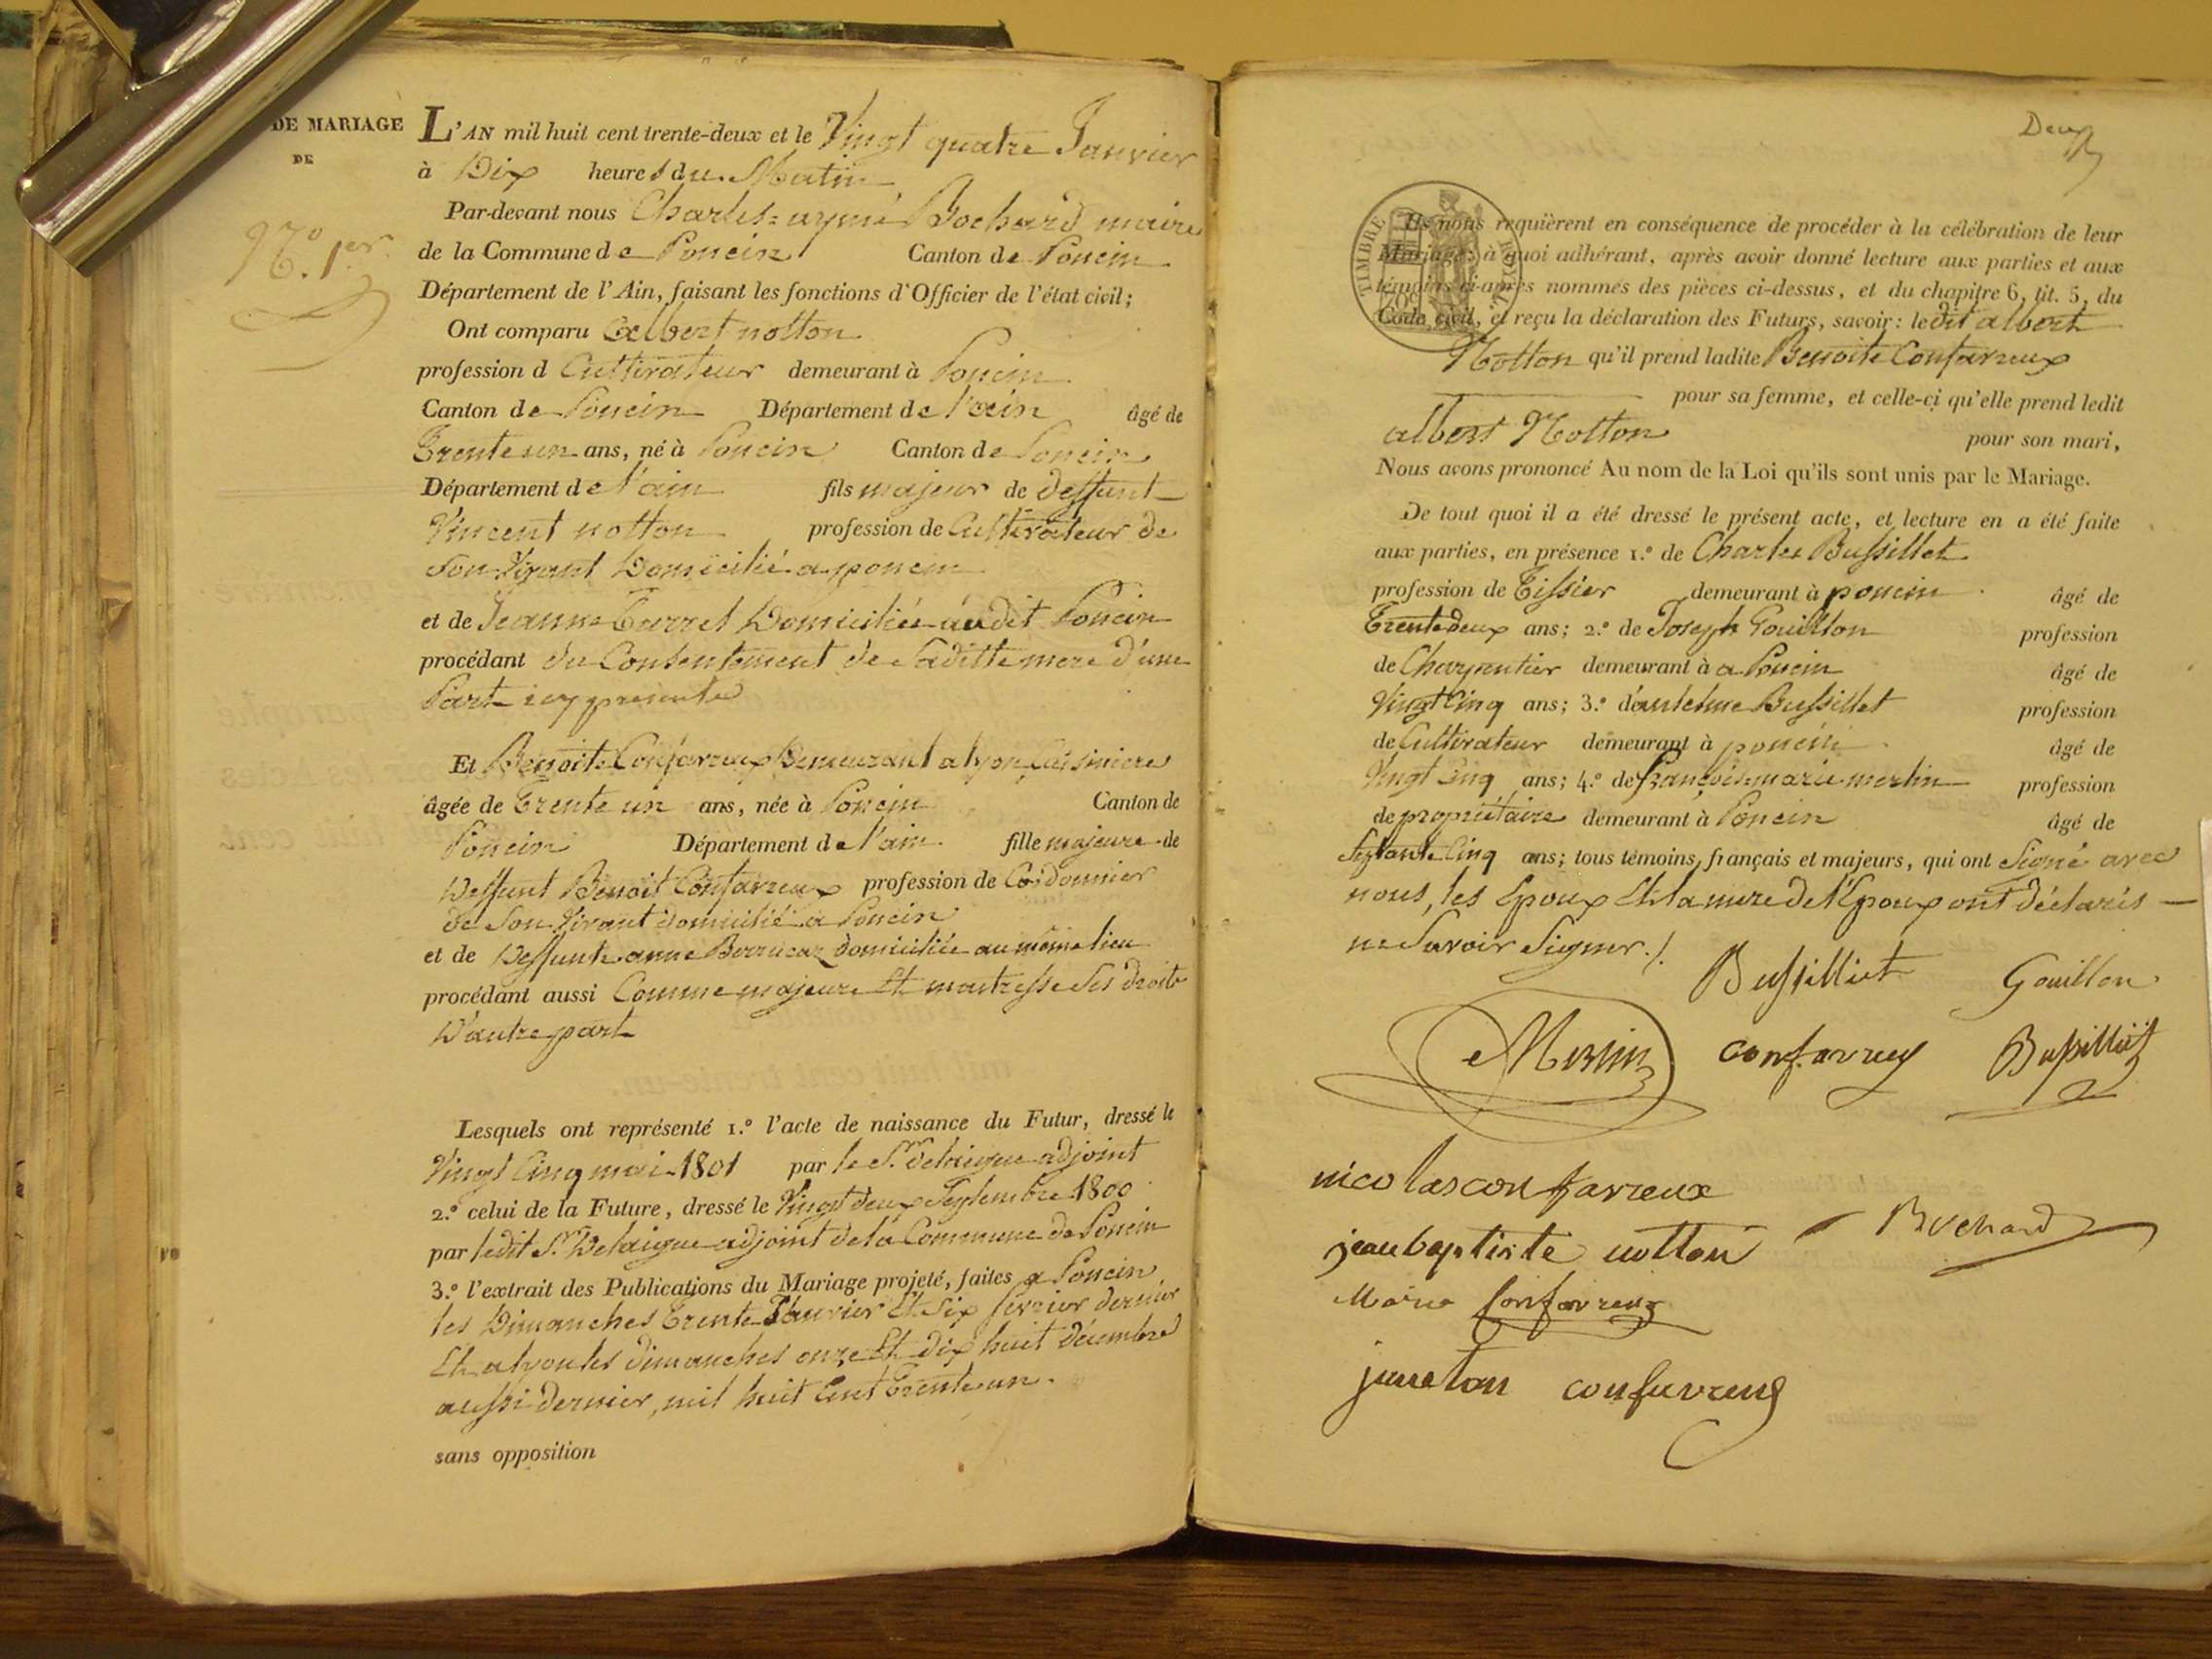 DE MARIAGE
DE
N.º 1.er
L'AN mil huit cent trente-deux et le Vingt quatre Janvier
à Dix heures du Matin
Par-devant nous Charles=aymé Bochard maire
de la Commune de Poncin Canton de Poncin
Département de l'Ain, faisant les fonctions d'Officier de l'état civil;
Ont comparu albert notton
profession d Cultivateur demeurant à Poncin
Canton de Poncin Département de l'ain âgé de
Trente un ans, né à Poncin Canton de Poncin
Département de l'ain fils majeur de deffunt
Vincent notton profession de Cultivateur de
Son Vivant Domicilié a poncin
et de Jeanne Carrel Domiciliée audit Poncin
procédant du Consentement de Saditte mere d'une
Part icy presente
Et Benoite Confavreux Demeurant a lyon Cuisiniere
âgée de Trente un ans, née à Poncin Canton de
Poncin Département de l'ain fille majeure de
Deffunt Benoit Confavreux profession de Cordonnier
de Son Vivant domicilié a Poncin
et de Deffunte anne domiciliée au même lieu
procédant aussi Comme majeure Et maitresse Ses droits
D'autre part
Lesquels ont représenté 1.º l'acte de naissance du Futur, dressé le
Vingt Cinq mai 1801 par le S.r delaigue adjoint
2.º celui de la Future, dressé le Vingt deux Septembre 1800
par ledit S.r Delaigue adjoint de la Commune de Poncin
3.º l'extrait des Publications du Mariage projeté, faites a Poncin
les Dimanches Trente Janvier Et Six fevrier dernier
Et a lyon les dimanches onze Et dix huit décembre
aussi dernier, mil huit Cent Trente un.
sans opposition
Deux
TIMBRE ROYAL
Ils nous requièrent en conséquence de procéder à la célébration de leur
Mariage: à quoi adhérant, après avoir donné lecture aux parties et aux
témoins ci-après nommés des pièces ci-dessus, et du chapitre 6, tit. 5, du
Code civil, et reçu la déclaration des Futurs, savoir: ledit albert
Notton qu'il prend ladite Benoite Confavreux
pour sa femme, et celle-ci qu'elle prend ledit
albert Notton pour son mari,
Nous avons prononcé Au nom de la Loi qu'ils sont unis par le Mariage.
De tout quoi il a été dressé le présent acte, et lecture en a été faite
aux parties, en présence 1.º de Charles Bussillet
profession de Tissier demeurant à poncin âgé de
Trente deux ans; 2.º de Joseph Gouillon profession
de Charpentier demeurant à a Poncin âgé de
Vingt Cinq ans; 3.º d'antelme Bussillet profession
de Cultivateur demeurant à poncin âgé de
Vingt Cinq ans; 4.º de françois marie merlin profession
de propriétaire demeurant à Poncin âgé de
Septante Cinq ans; tous témoins, français et majeurs, qui ont Signé avec
nous, les Epoux Et la mere de l'Epoux ont déclarés
ne Savoir Signer ./.
Bussilliet Gouillon
Merlin confavreux Bussilliet
nicolas confavreux
jean baptiste notton Bochard
Marie Confavreux
juneton confavreux